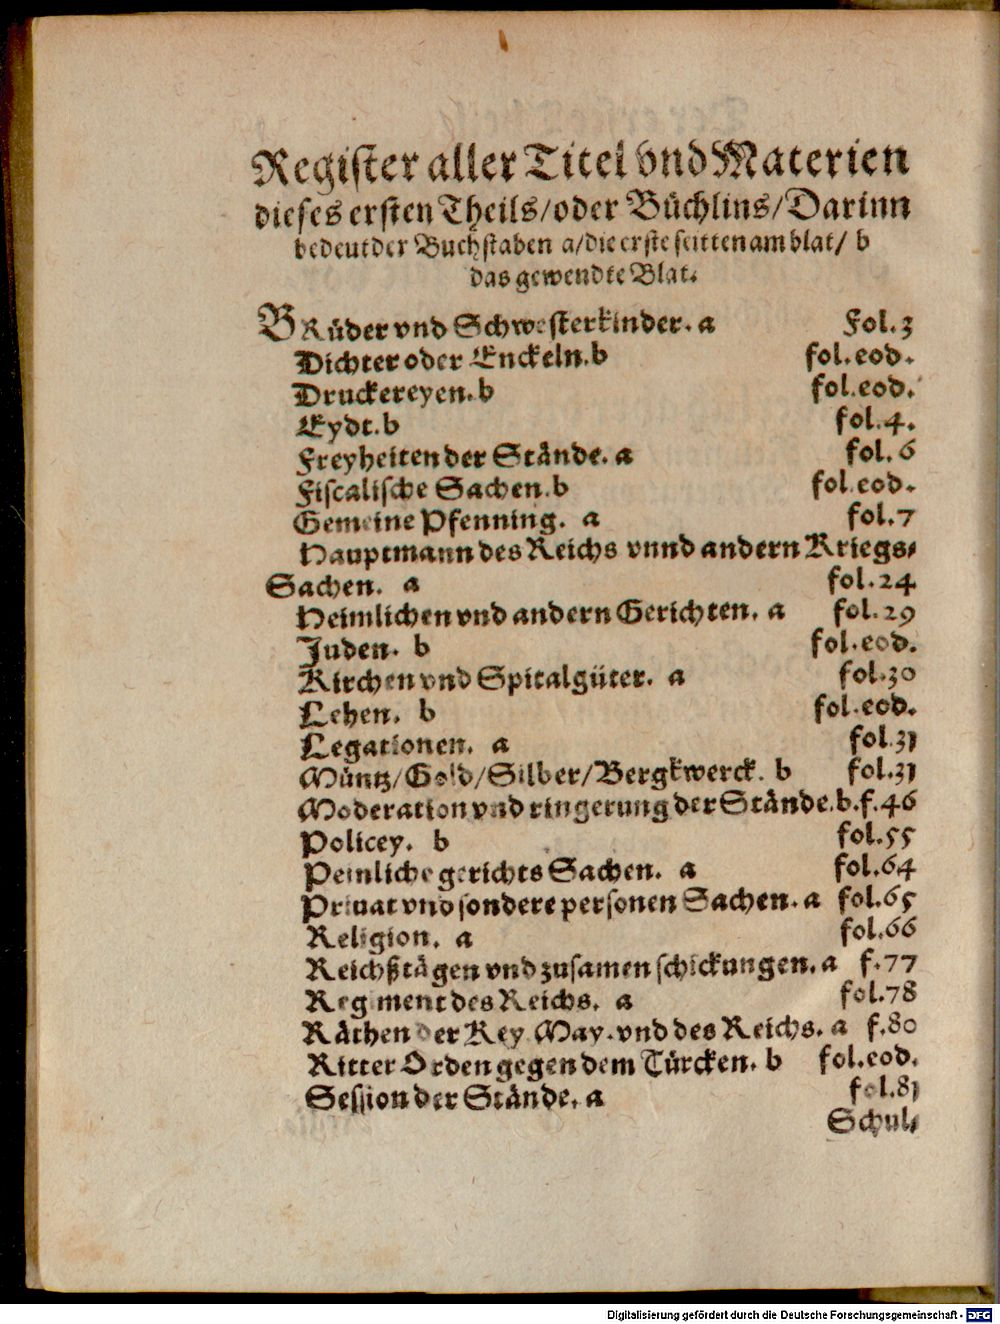 Register aller Titel vnd Materien
dieses ersten Theils/oder Büchlins/Darinn
bedeut der Buchstaben a/die erste seitten am blat/ b
das gewendte Blat.
BRüder vnd Schwesterkinder. a Fol.3
Dichter oder Enckeln.b fol.eod.
Druckereyen.b fol.eod.
Eydt.b fol.4.
Freyheiten der Stände. a fol.6
Fiscalische Sachen.b fol.eod.
Gemeine Pfenning. a fol.7
Hauptmann des Reichs vnnd andern Kriegs-
Sachen. a fol.24
Heimlichen vnd andern Gerichten. a fol.29
Juden. b fol.eod.
Kirchen vnd Spitalgüter. a fol.30
Lehen. b fol.eod.
Legationen. a fol.31
Müntz/Gold/Silber/Bergkwerck. b fol.31
Moderation vnd ringerung der Stände.b.f.46
Policey. b fol.55
Peinliche gerichts Sachen. a fol.64
Priuat vnd sondere personen Sachen. a fol.65
Religion. a fol.66
Reichßtägen vnd zusamen schickungen. a f.77
Regiment des Reichs. a fol.78
Räthen der Key. May. vnd des Reichs. a f.80
Ritter Orden gegen dem Türcken. b fol.eod.
Session der Stände. a fol.81
Schul-
Digitalisierung gefördert durch die Deutsche Forschungsgemeinschaft - DFG